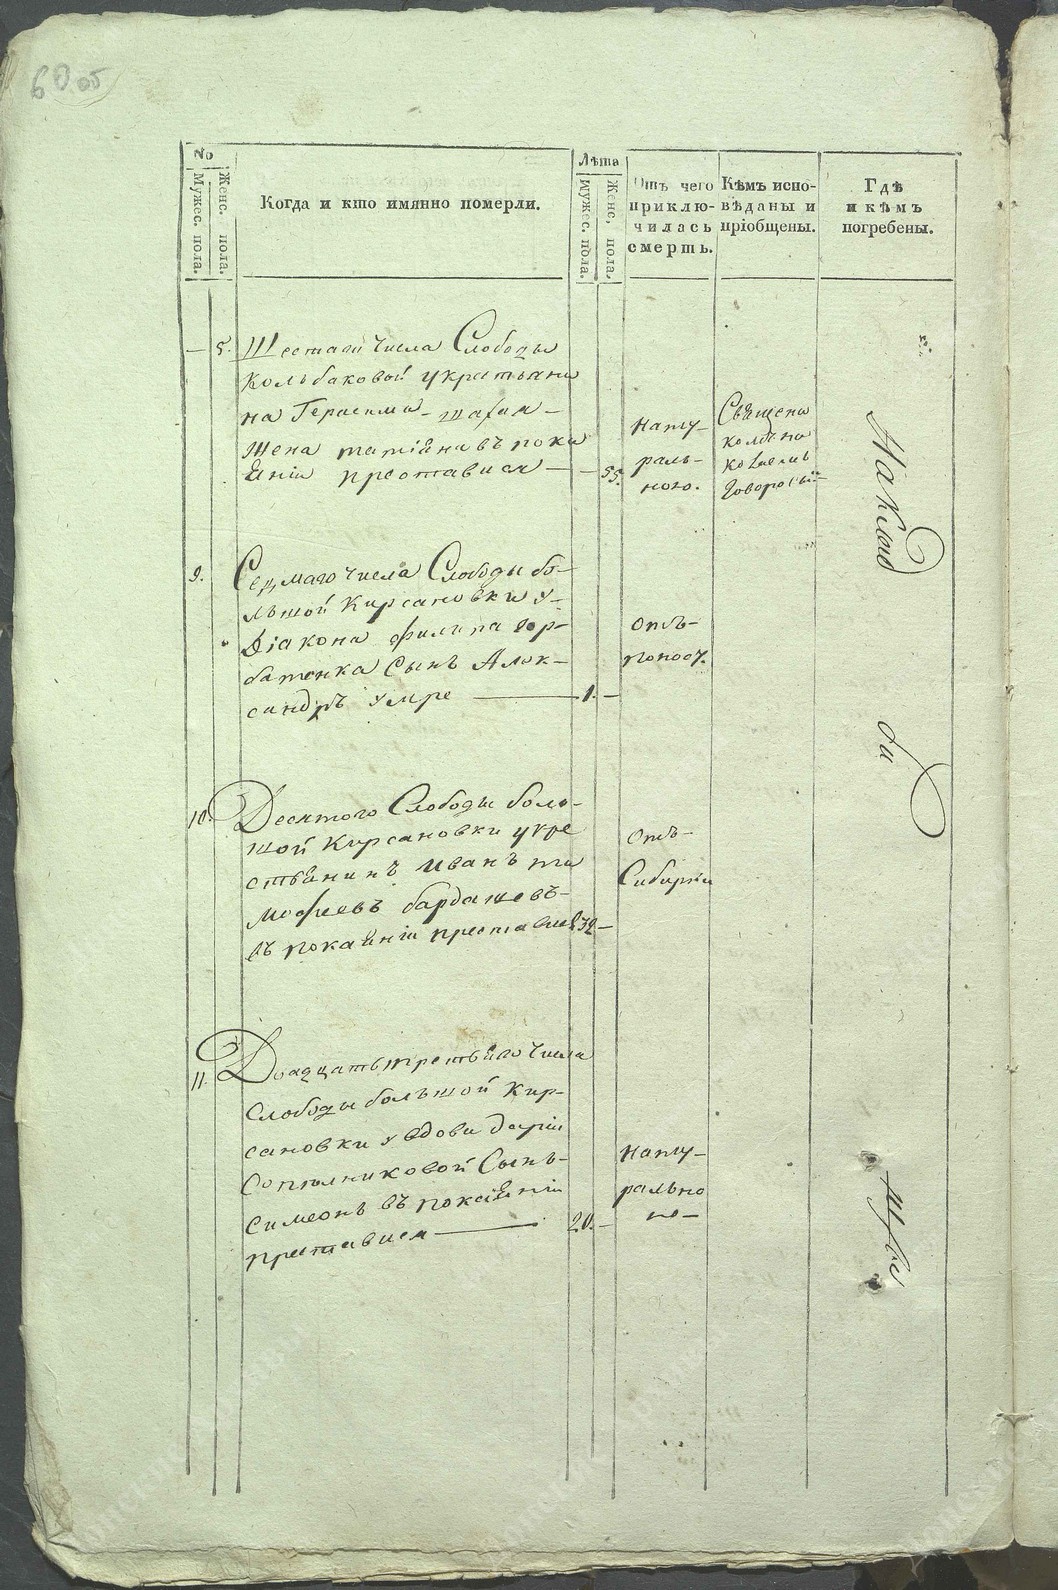 60 об
№
Мужес. пола.
Женс. пола.
Когда и кто имянно померли.
Лѣта
Мужес. пола.
Женс. пола.
Отъ чего
приклю-
чилась
смерть.
Кѣмъ испо-
вѣданы и
пріобщены.
Гдѣ
и кѣмъ
погребены.
— 5. Шестаго числа Слободы
Кольбаковой укрестьяни
на Герасима
Жена татіѣна въ пока
ѣніи преставися — 55.
нату-
раль-
ного.
Священи
комъ
Говоро
9. Седмаго числа Слободы бо-
льшой Кирсановки у-
діакона филипа гор-
батенка Сынъ Алек-
сандръ умре — 1. —
отъ-
поносу.
10. Десятого Слободы боль-
шой Кирсановки укре
стьѣнинъ иванъ ти
мофеевъ бардашевъ-
въ покаѣніи преставися 32 —
отъ-
Сибирки
11. Двадцатьтретьѣго числа
Слободы большой Кир-
сановки увдови даріи
Сопѣлниковой Сынъ-
симеонъ въ покаіѣніи
преставися — 20. —
нату-
рально
го-
На клад
би